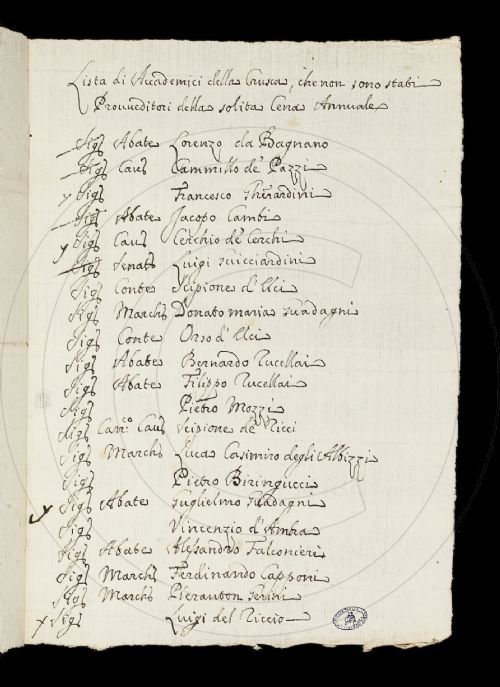 Lista di Accademici della Crusca, che non sono stati
Provveditori della solita Cena Annuale
Sigr Abate Lorenzo da Bagnano
Sigr Cavr Cammillo de' Pazzi
y Sigr Francesco Gherardini
Sigr Abate Jacopo Cambi
y Sigr Cavr Cerchio de' Cerchi
Sigr Senatr Luigi Guicciardini
Sigr Conte Scipione d'Elci
Sigr Marchs Donato maria Guadagni
Sigr Conte Orso d'Elci
Sigr Abate Bernardo Rucellai
Sigr Abate Filippo Rucellai
Sigr Pietro Mozzi
Sigr Can.co Cavr Scipione de' Ricci
Sigr Marchs Luca Casimiro degli Albizzi
Sigr Pietro Biringucci
y Sigr Abate Guglielmo Guadagni
Sigr Vincenzio d'Ambra
Sigr Abate Alessandro Falconieri
Sigr Marchs Ferdinando Capponi
Sigr Marchs Pieranton Gerini
y Sigr Luigi del Riccio